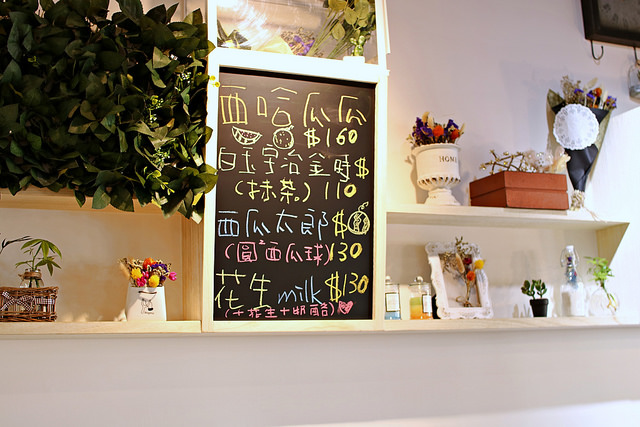 西哈瓜瓜
$160
白玉宇治金時$
(抹茶。) 110
西瓜太郎$
(圓²西瓜球)130
花生milk$130
(+花生+奶酪)
HOME